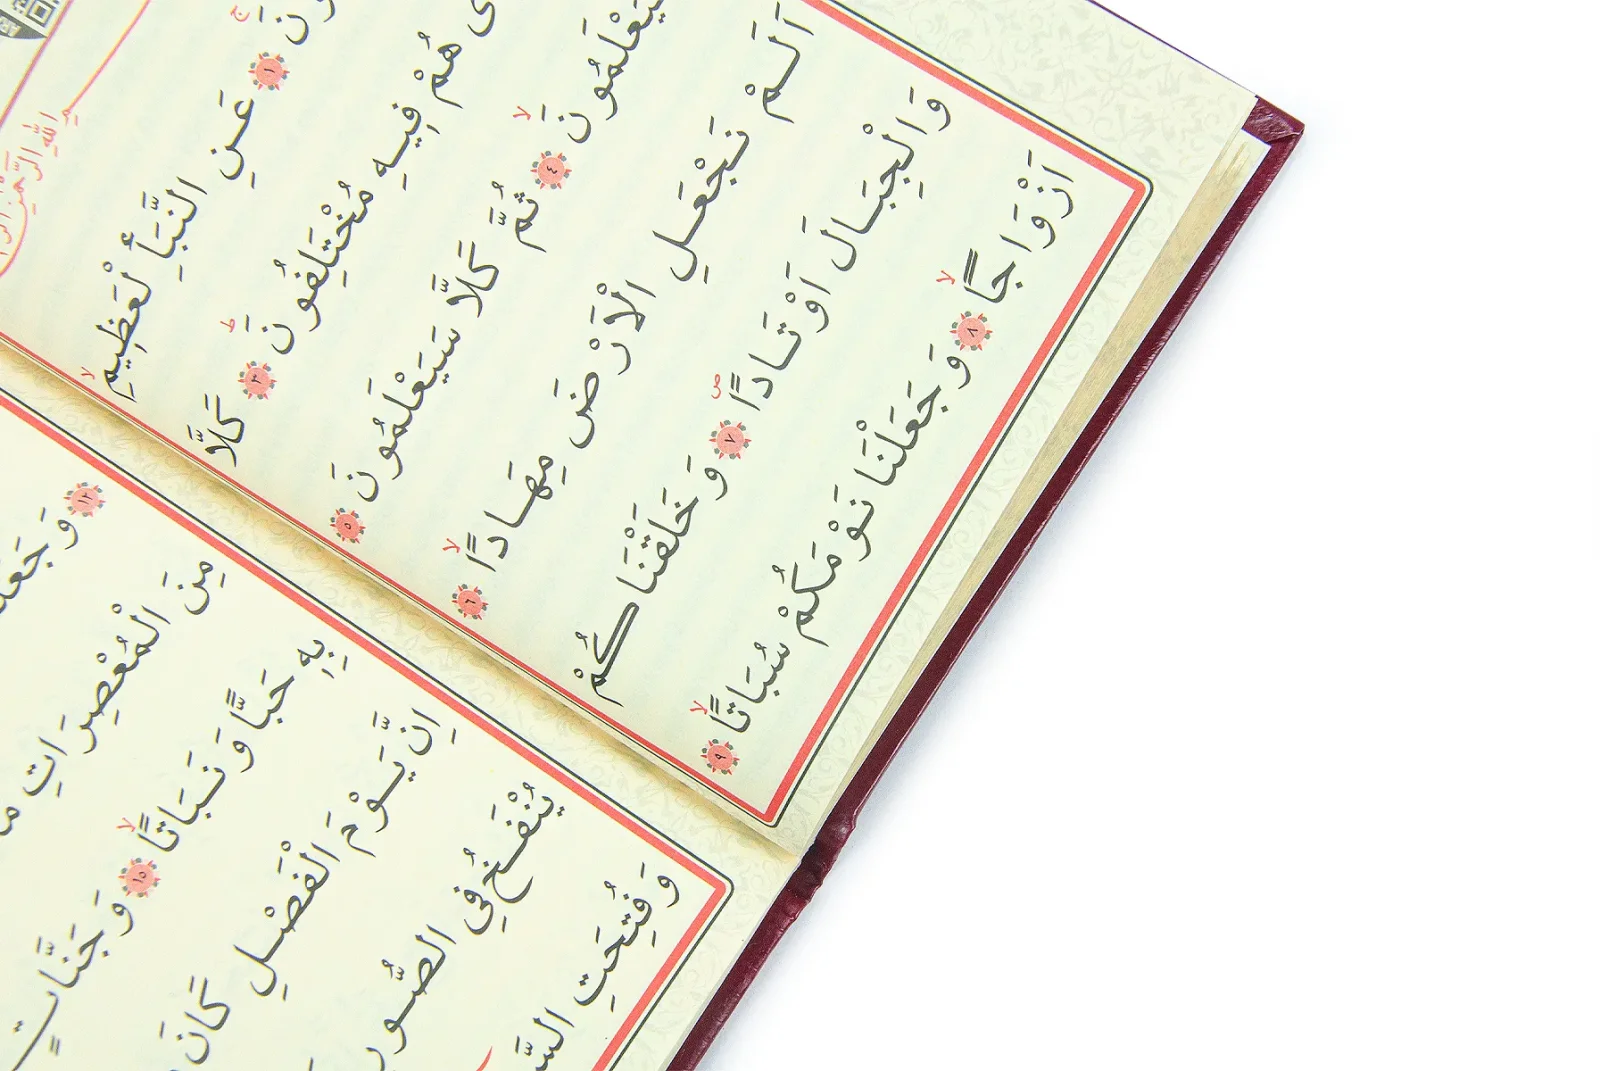 اللّٰهِ الرَّحْمٰنِ
١ عَنِ النَّبَأِ لْعَظِيمِ ۙ
هُمْ فِيهِ مُخْتَلِفُونَ ط ٣ كَلَّا
سَيَعْلَمُونَ ۙ ٤ ثُمَّ كَلَّا سَيَعْلَمُونَ ٥
اَلَمْ نَجْعَلِ الْاَرْضَ مِهَادًا ۙ ٦
وَالْجِبَالَ اَوْتَادًا ص ٧ وَخَلَقْنَاكُمْ
اَزْوَاجًا ۙ ٨ وَجَعَلْنَا نَوْمَكُمْ سُبَاتًا ۙ ٩
١٢ وَجَعَلْ
مِنَ الْمُعْصِرَاتِ
بِهِ حَبًّا وَنَبَاتًا ۙ ١٥ وَجَنَّاتٍ
اِنَّ يَوْمَ الْفَصْلِ كَانَ
يُنْفَخُ فِي الصُّورِ
وَفُتِحَتِ